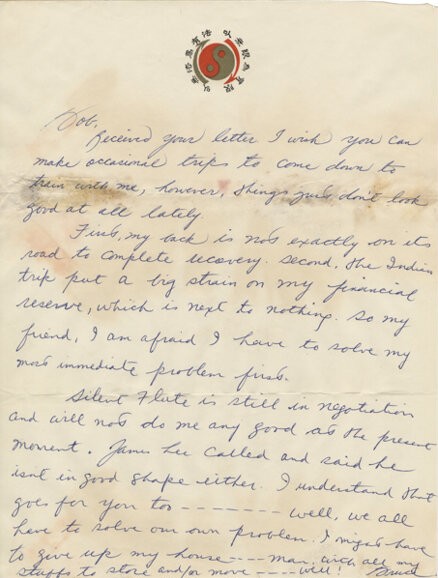 Bob,
Received your letter I wish you can
make occasional trips to come down to
train with me, however, things just don't look
good at all lately.
First, my back is not exactly on its
road to complete recovery. Second, the Indian
trip put a big strain on my financial
reserve, which is next to nothing. So my
friend, I am afraid I have to solve my
most immediate problem first.
Silent Flute is still in negotiation
and will not do me any good at the present
moment. James Lee called and said he
isnt in good shape either. I understand that
goes for you too -------- well, we all
have to solve our own problem. I might have
to give up my house ---- man, with all my
stuffs to store and/or move ---- well! Bruce